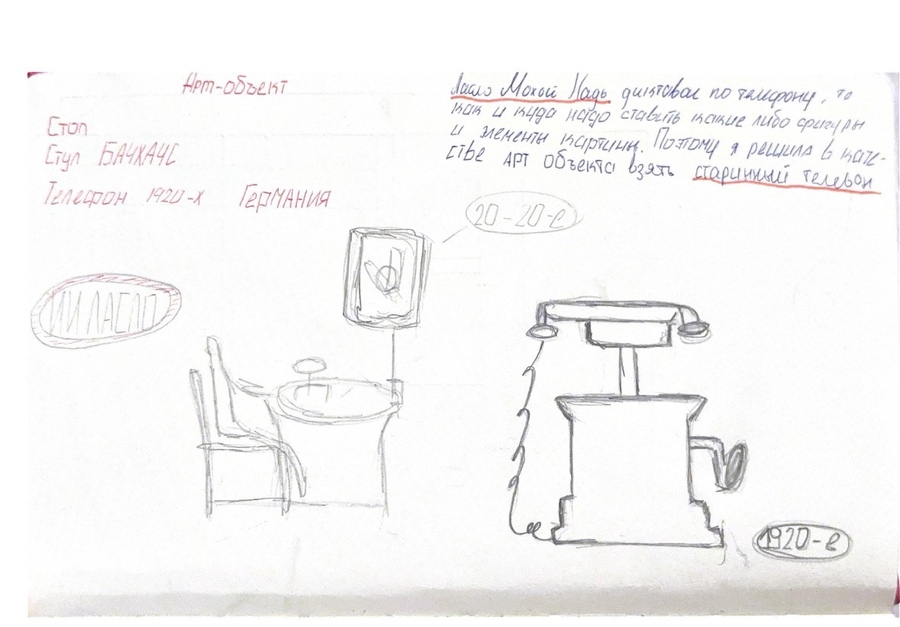 Арт-объект
Стол
Стул БАУХАУС
Телефон 1920-х ГЕРМАНИЯ
Ласло Мохой Надь диктовал по телефону, то
как и куда надо ставить какие либо фигуры
и элементы картины. Поэтому я решила в каче-
стве АРТ объекта взять старинный телефон
20-20-е
ИИ ЛАСЛО
1920-е